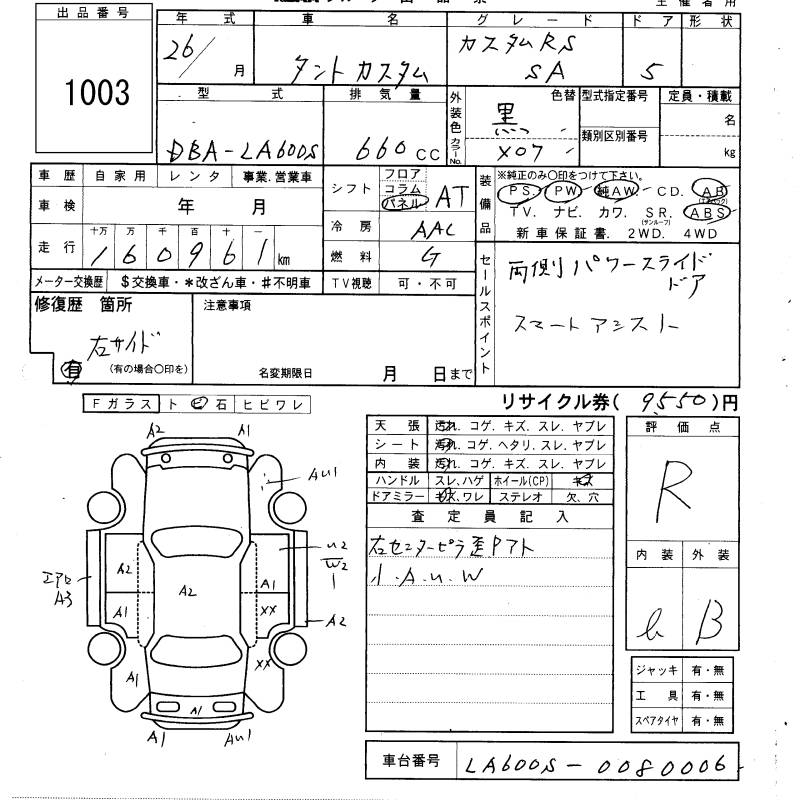 出品番号
1003
年 式 車 名 グレード ドア 形状
26/ 月 タントカスタム カスタムRS SA 5
型 式 排気量 外装色 色替 型式指定番号 定員・積載
DBA-LA600S 660 CC 黒 カラーNo. X07 類別区別番号 名 kg
車歴 自家用 レンタ 事業.営業車
車検 年 月
走行 十万 万 千 百 十 一
1 6 0 9 6 1 km
メーター交換歴 $交換車・*改ざん車・#不明車
シフト フロア コラム パネル AT
冷房 AAC
燃料 G
TV視聴 可・不可
装備品 ※純正のみ〇印をつけて下さい。
PS. PW. 純AW. CD. AB (エアバック)
TV. ナビ. カワ. SR. (サンルーフ) ABS
新車保証書. 2WD. 4WD
セールスポイント
両側パワースライドドア
スマートアシスト
修復歴 箇所
右サイド
有 (有の場合〇印を)
注意事項
名変期限日 月 日まで
Fガラス ト ビ 石 ヒビワレ
リサイクル券( 9,550 )円
天張 汚れ. コゲ. キズ. スレ. ヤブレ
シート 汚れ. コゲ. ヘタリ. スレ. ヤブレ
内装 汚れ. コゲ. キズ. スレ. ヤブレ
ハンドル スレ, ハゲ ホイール(CP) キズ
ドアミラー キズ, ワレ ステレオ 欠、穴
査定員記入
右センターピラ歪Pアト
小.A.U.W
評価点
R
内装 外装
b B
ジャッキ 有・無
工具 有・無
スペアタイヤ 有・無
車台番号 LA600S-0080006
A2 A1
AU1
U2
W2
1
エアロ
A3
A2 A2 A1
A1 XX
A2
XX
A1
A1
A1 AU1